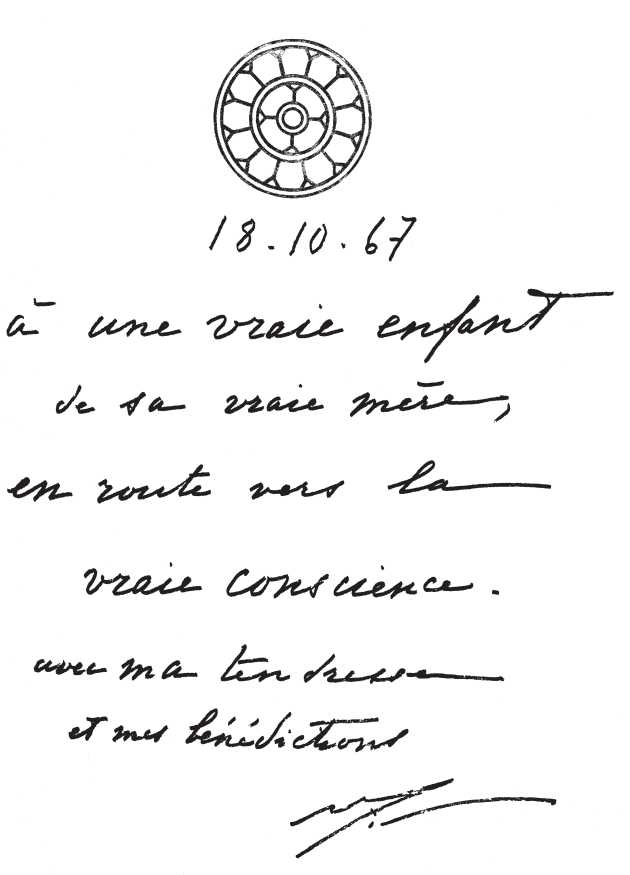 18.10.67
à une vraie enfant
de sa vraie mère,
en route vers la
vraie conscience.
avec ma tendresse
et mes bénédictions